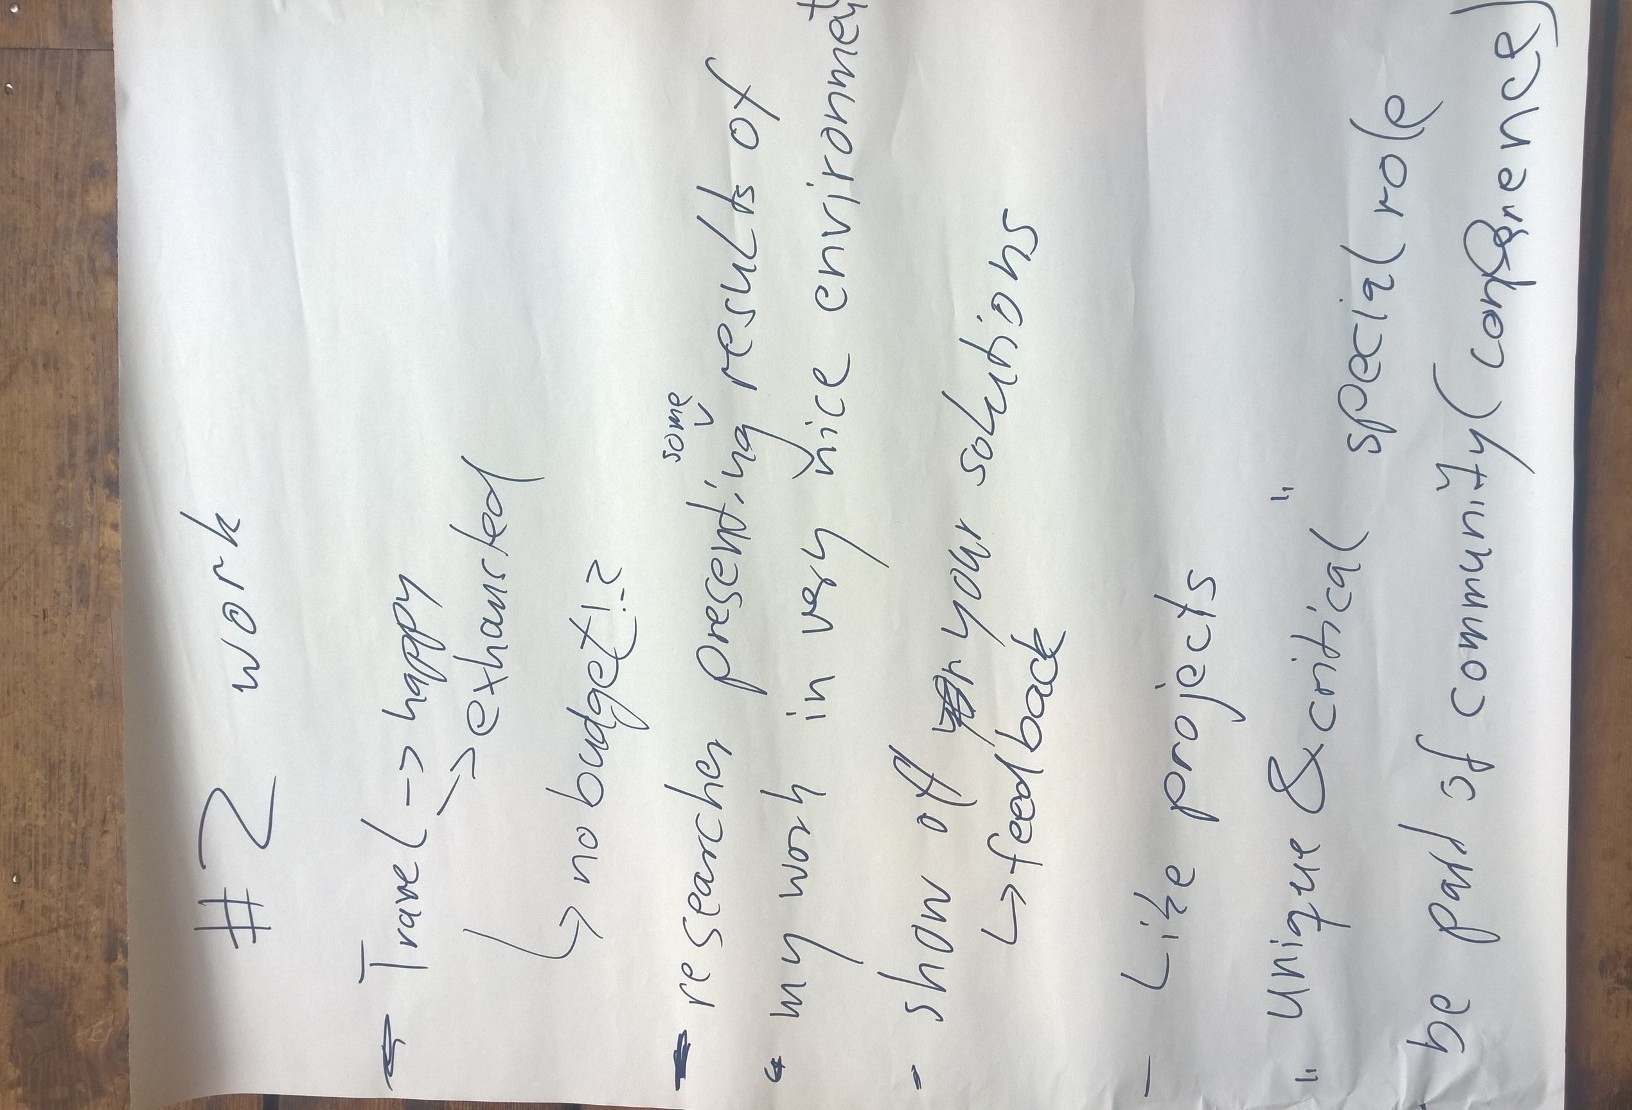 #2 work
- Travel -> happy
-> exhausted
↳ no budget!?
- researcher presenting some results of
my work in very nice environment
- show of your solutions
↳ feedback
- Like projects
" unique & critical " special role
be part of community (conference)